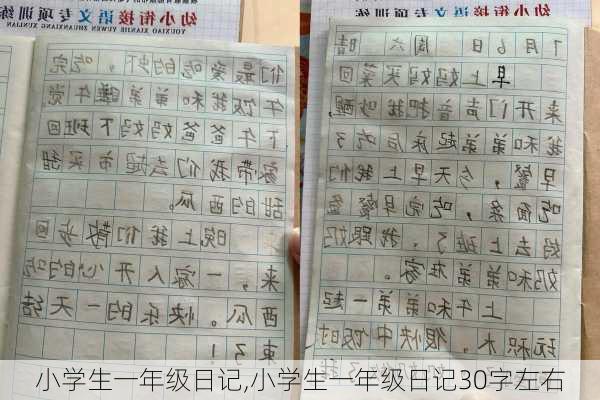 幼小衔接语文专项训练
YOUXIAO XIANJIE YUWEN ZHUANXIANG XUNLIAN
7月6日 周六 晴
早上妈妈买菜回
来开门声音把我吵醒
我和弟弟起床后吃了
早餐,今天早上我们
吃面条,吃完早餐爸
妈去上班了。我跟奶
奶和弟弟在家。
上午和弟弟一起
玩积水。很快中饭时
幼小衔接语文专项训练
YOUXIAO XIANJIE YUWEN ZHUANXIANG XUNLIAN
们最爱吃的虾。吃完
午饭我和弟弟睡午觉
下午爸爸妈妈下班回
家带我们去超市买甜
甜的西瓜。
晚上我们散步回
来,一家人开心的吃
西瓜。快乐的一天结
束了!
小学生一年级日记,小学生一年级日记30字左右